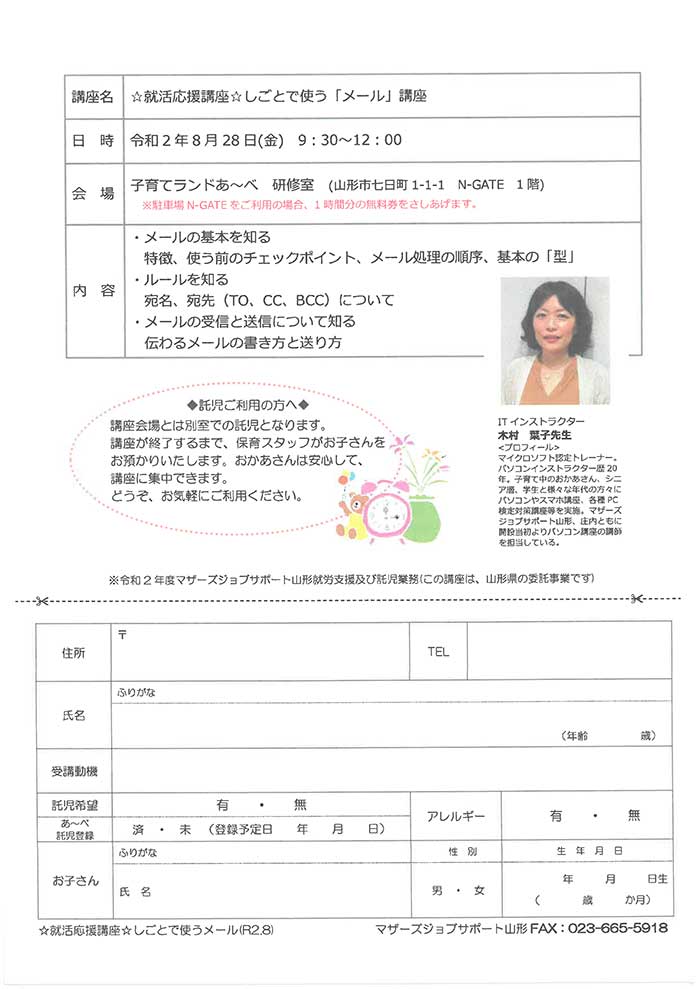 講座名 ☆就活応援講座☆しごとで使う「メール」講座
日 時 令和2年8月28日(金) 9:30～12:00
会 場 子育てランドあ～べ 研修室 (山形市七日町1-1-1 N-GATE 1階)
※駐車場N-GATEをご利用の場合、1時間分の無料券をさしあげます。
内 容
・メールの基本を知る
特徴、使う前のチェックポイント、メール処理の順序、基本の「型」
・ルールを知る
宛名、宛先（TO、CC、BCC）について
・メールの受信と送信について知る
伝わるメールの書き方と送り方
◆託児ご利用の方へ◆
講座会場とは別室での託児となります。
講座が終了するまで、保育スタッフがお子さんを
お預かりいたします。おかあさんは安心して、
講座に集中できます。
どうぞ、お気軽にご利用ください。
ITインストラクター
木村 葉子先生
<プロフィール>
マイクロソフト認定トレーナー。
パソコンインストラクター歴20
年。子育て中のおかあさん、シニ
ア層、学生と様々な年代の方々に
パソコンやスマホ講座、各種PC
検定対策講座等を実施。マザーズ
ジョブサポート山形、庄内ともに
開設当初よりパソコン講座の講師
を担当している。
※令和2年度マザーズジョブサポート山形就労支援及び託児業務(この講座は、山形県の委託事業です)
住所 〒 TEL
氏名 ふりがな
（年齢 歳）
受講動機
託児希望 有 ・ 無
あ～べ
託児登録 済 ・ 未 （登録予定日 年 月 日）
アレルギー 有 ・ 無
お子さん ふりがな 性 別 生 年 月 日
氏 名 男 ・ 女 年 月 日生
（ 歳 か月）
☆就活応援講座☆しごとで使うメール(R2.8) マザーズジョブサポート山形 FAX：023-665-5918